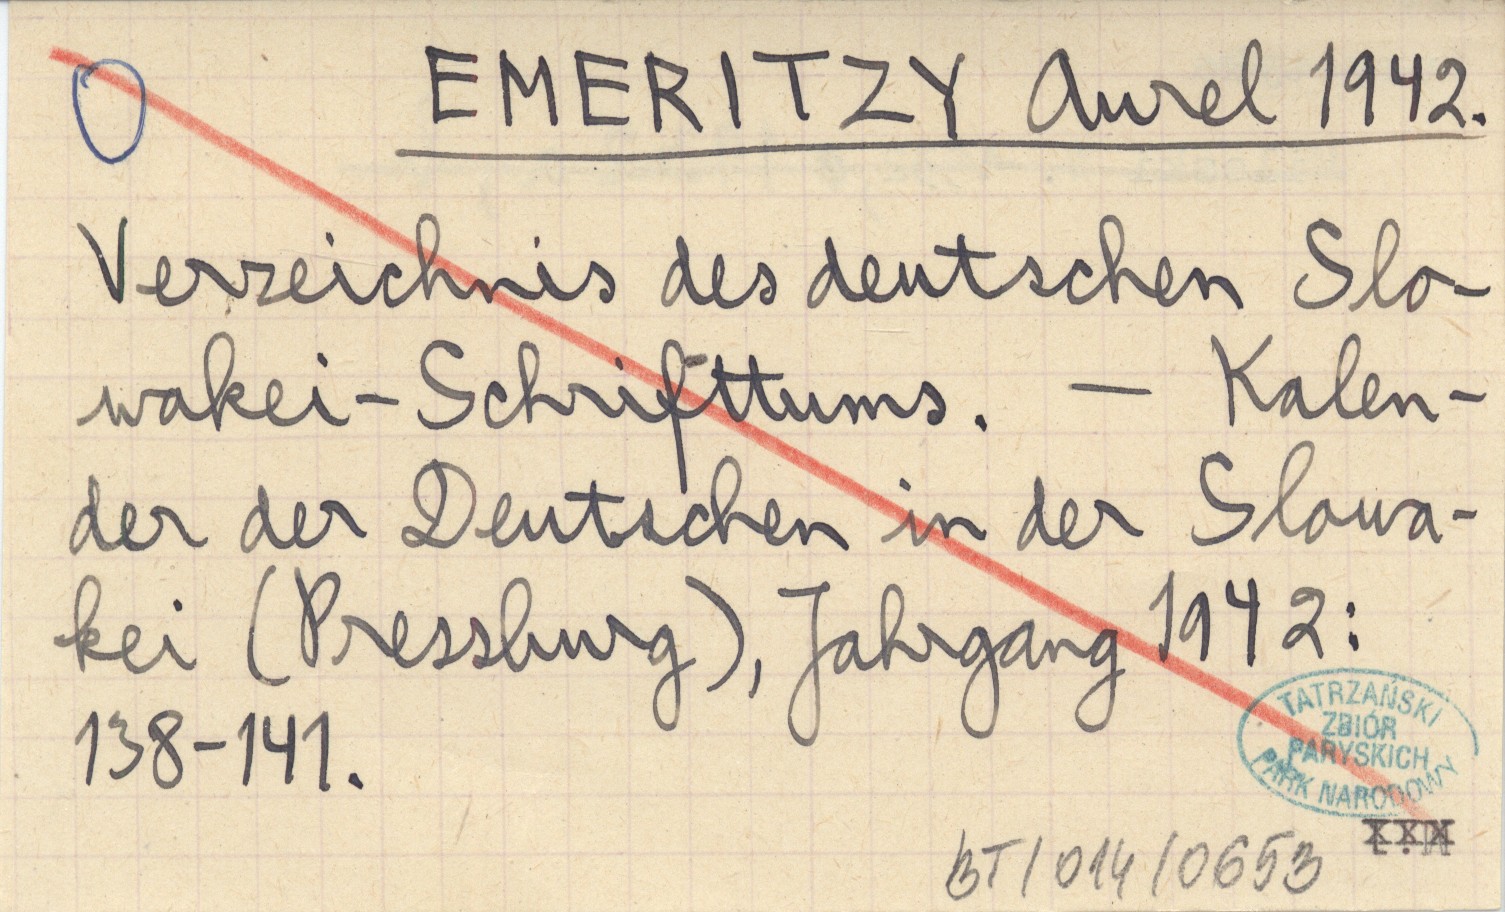 EMERITZY Aurel 1942.
Verzeichnis des deutschen Slo-
wakei-Schrifttums. — Kalen-
der der Deutschen in der Slowa-
kei (Pressburg), Jahrgang 1942:
138-141.
TATRZAŃSKI
ZBIÓR
PARYSKICH
PARK NARODOWY
XXX
BT/014/0653